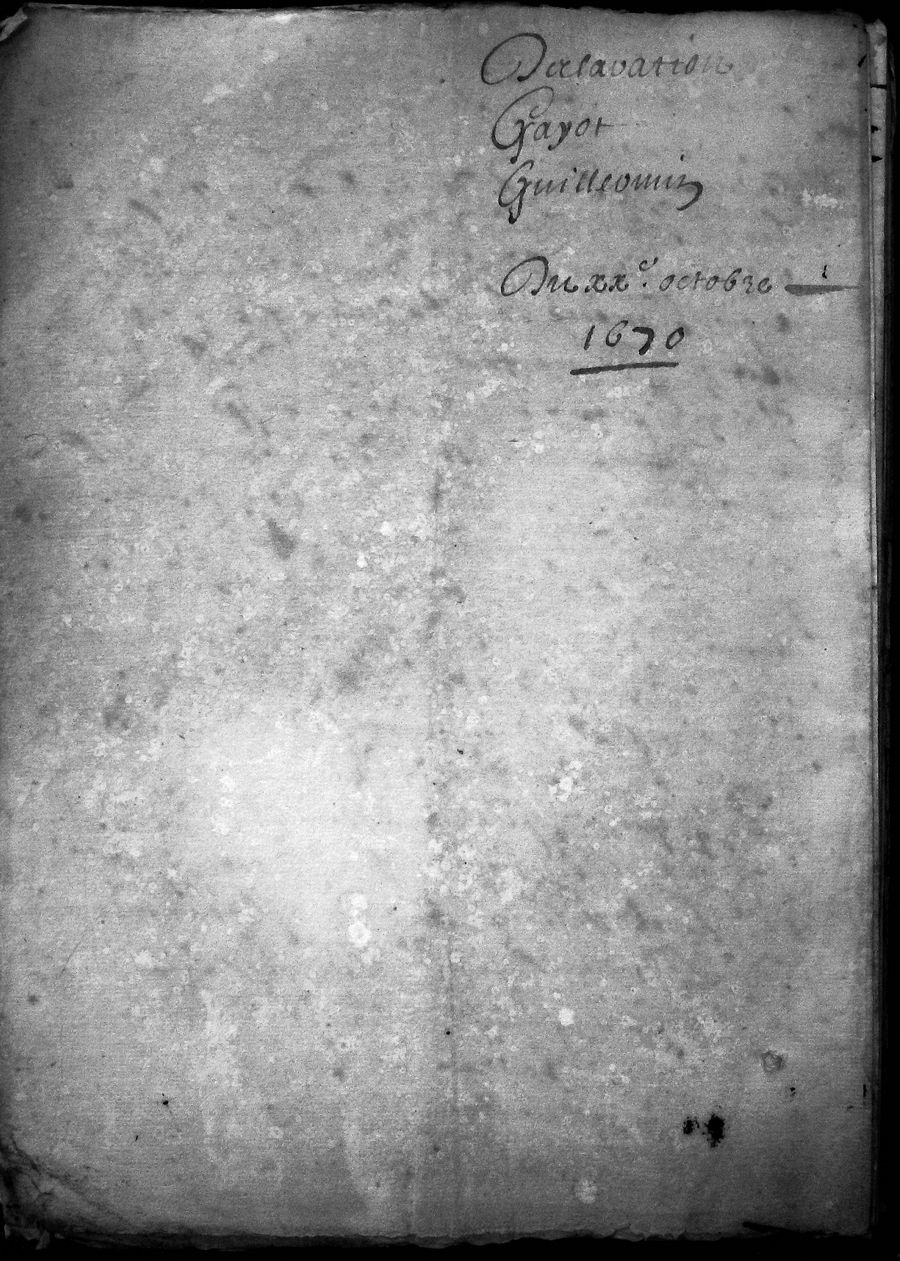 Declaration
Gayot
Guilleomin
Du xx.e octobre
1670